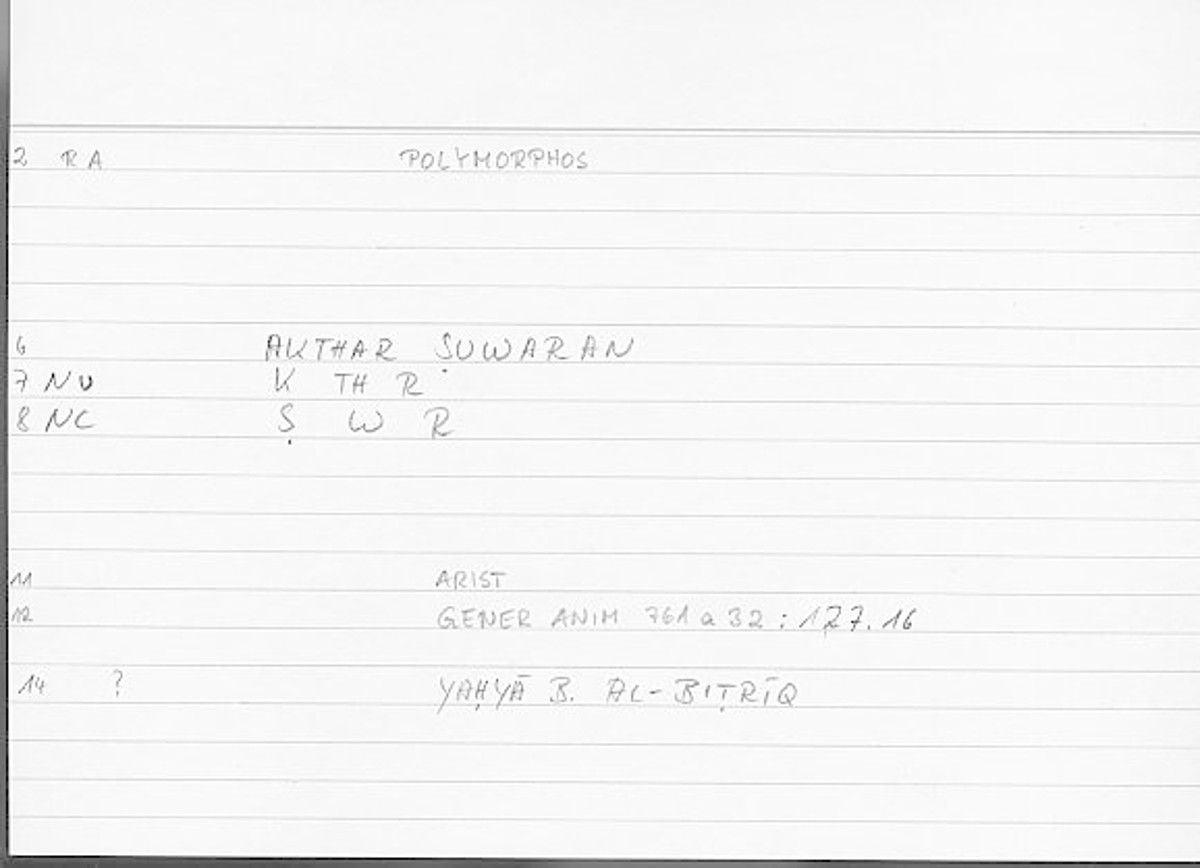 2 RA POLYMORPHOS
6 AKTHAR ṢUWARAN
7 NU K TH R
8 NC Ṣ W R
11 ARIST
12 GENER ANIM 761 a 32 : 127.16
14 ? YAḤYĀ B. AL-BIṬRĪQ